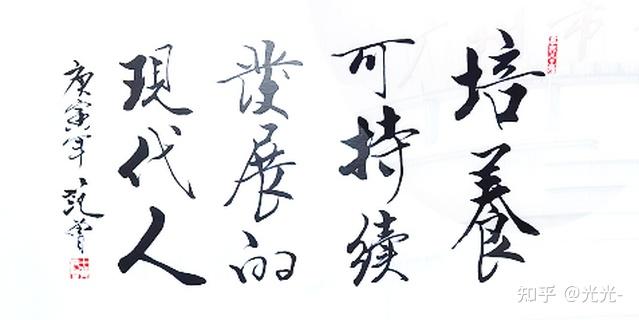 培養
可持續
發展的
現代人
庚寅年 范曾
知乎 @光光-